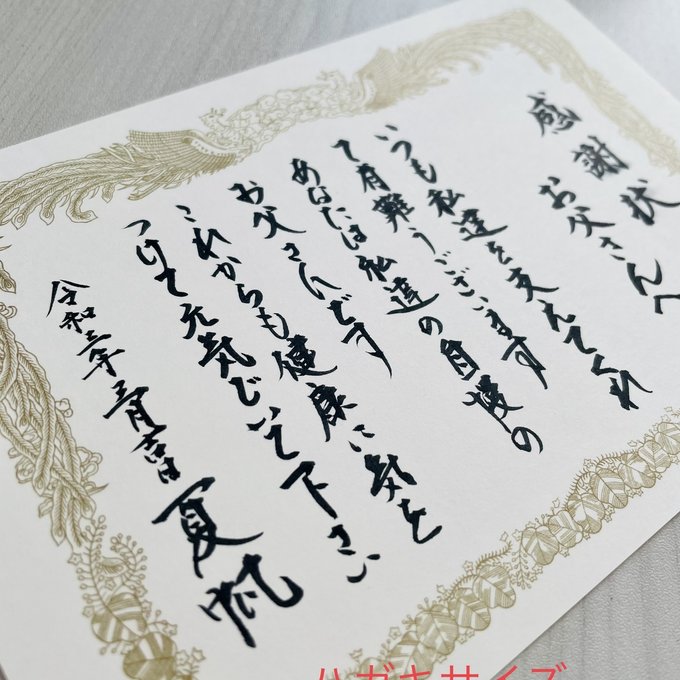 感謝状
お父さんへ
いつも私達を支えてくれ
て有難うございます
あなたは私達の自慢の
お父さんです
これからも健康に気を
つけて元気でいて下さい
令和三年 吉日
夏帆
ハガキサイズ